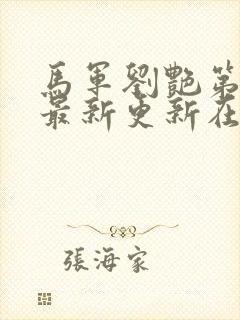 馬軍劉艷第
最新更新在
張海家